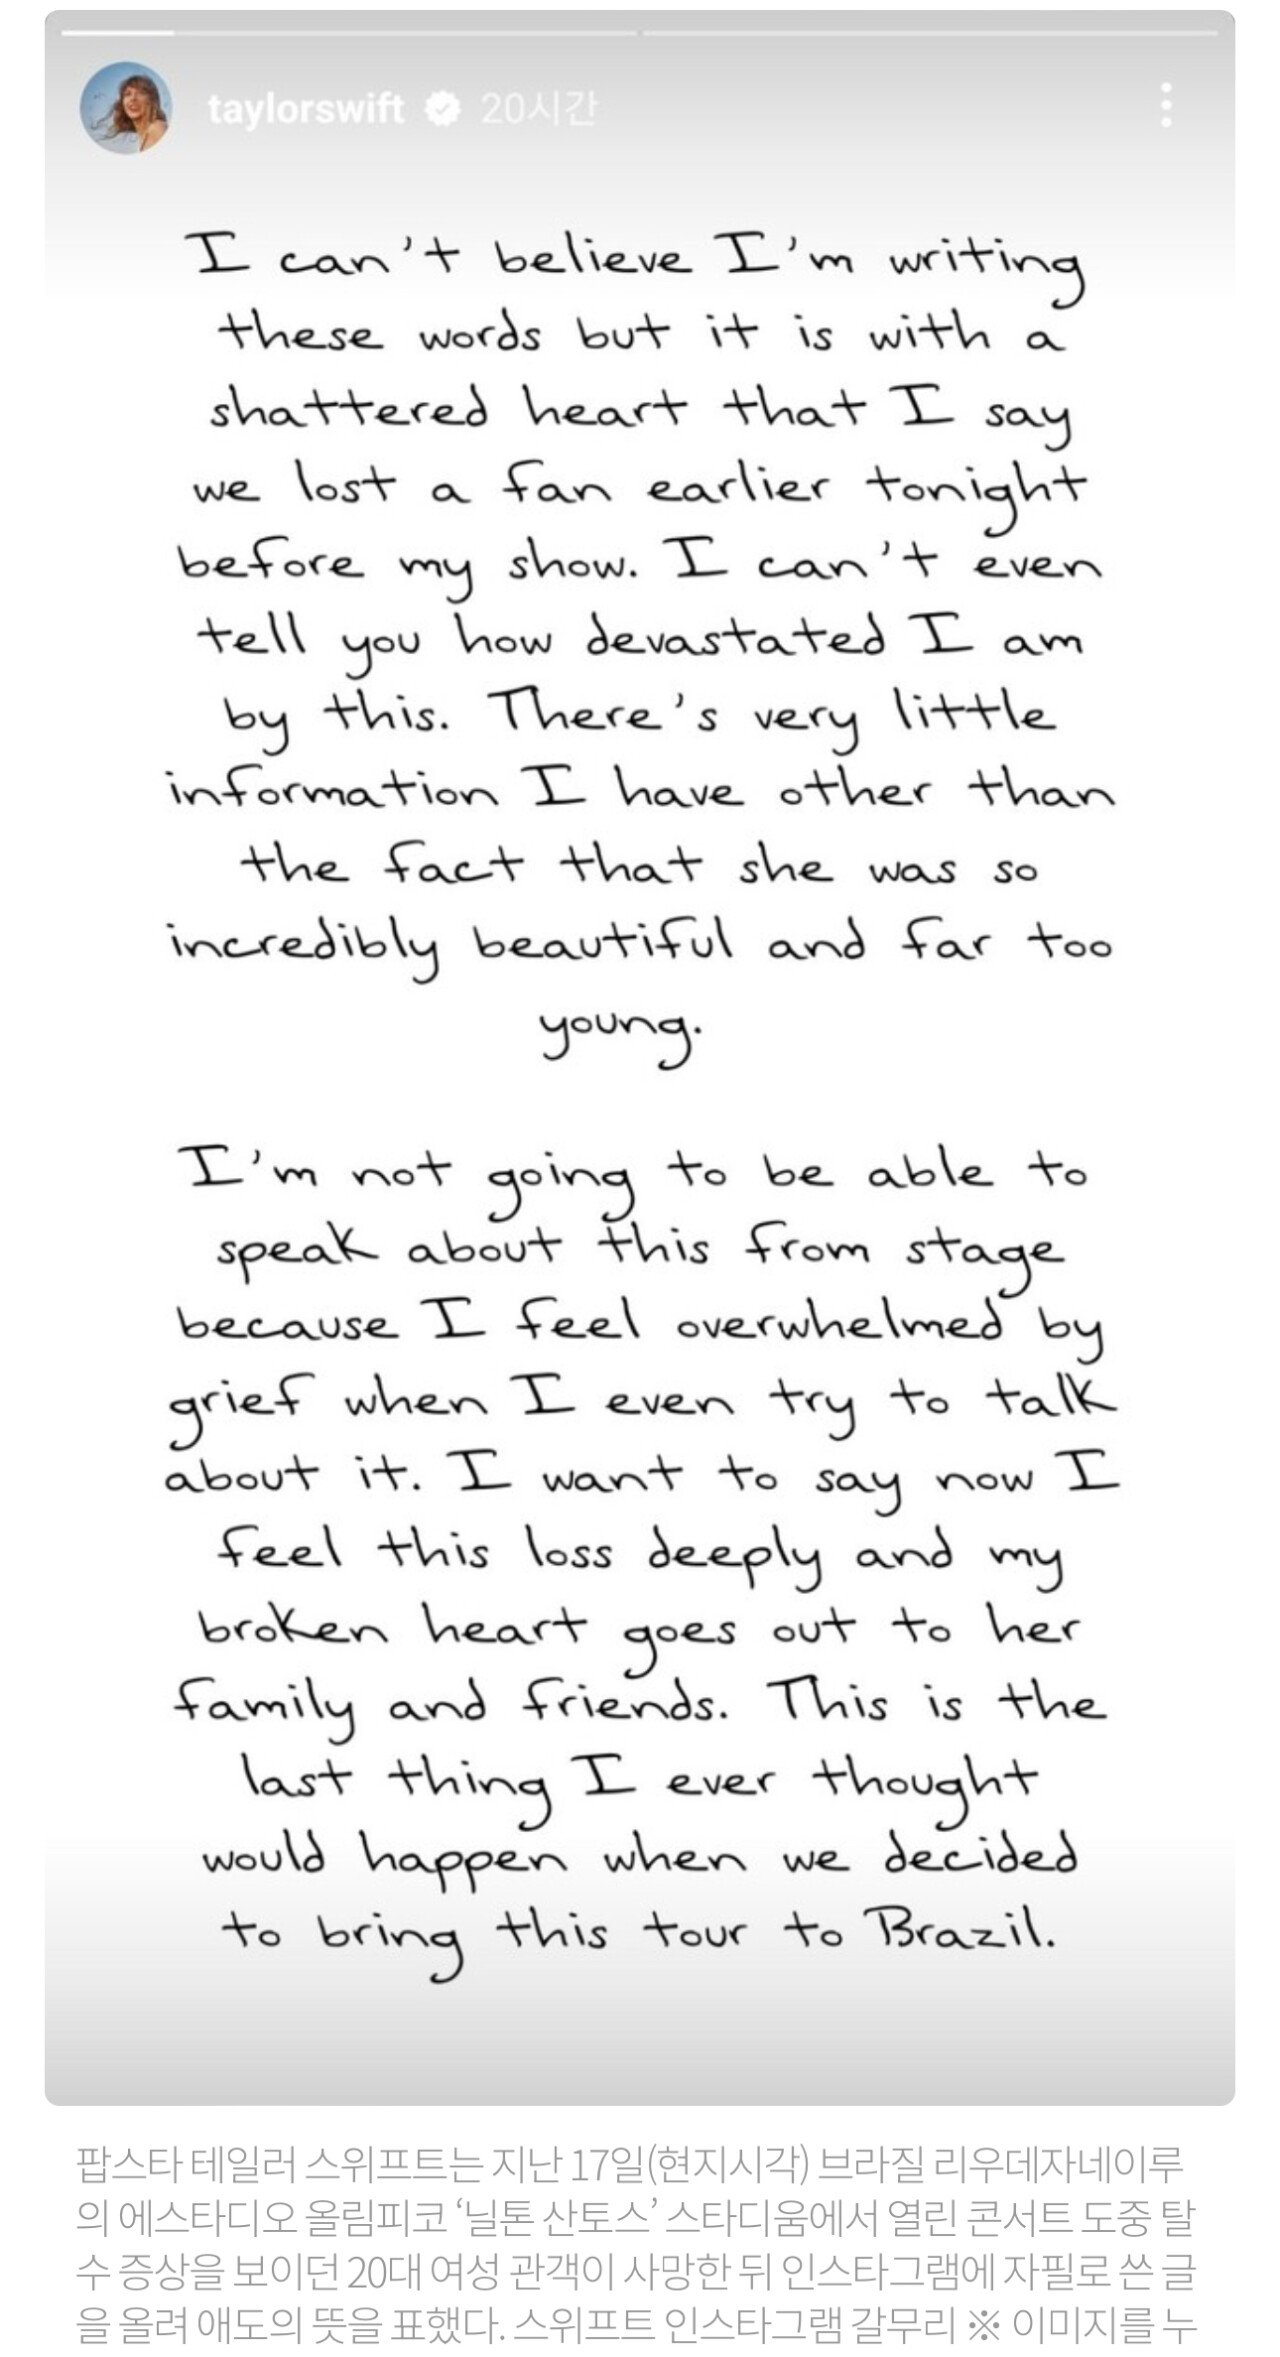 taylorswift 20시간
I can't believe I'm writing
these words but it is with a
shattered heart that I say
we lost a fan earlier tonight
before my show. I can't even
tell you how devastated I am
by this. There's very little
information I have other than
the fact that she was so
incredibly beautiful and far too
young.
I'm not going to be able to
speak about this from stage
because I feel overwhelmed by
grief when I even try to talk
about it. I want to say now I
feel this loss deeply and my
broken heart goes out to her
family and friends. This is the
last thing I ever thought
would happen when we decided
to bring this tour to Brazil.
팝스타 테일러 스위프트는 지난 17일(현지시각) 브라질 리우데자네이루
의 에스타디오 올림피코 ‘닐톤 산토스’ 스타디움에서 열린 콘서트 도중 탈
수 증상을 보이던 20대 여성 관객이 사망한 뒤 인스타그램에 자필로 쓴 글
을 올려 애도의 뜻을 표했다. 스위프트 인스타그램 갈무리 ※ 이미지를 누